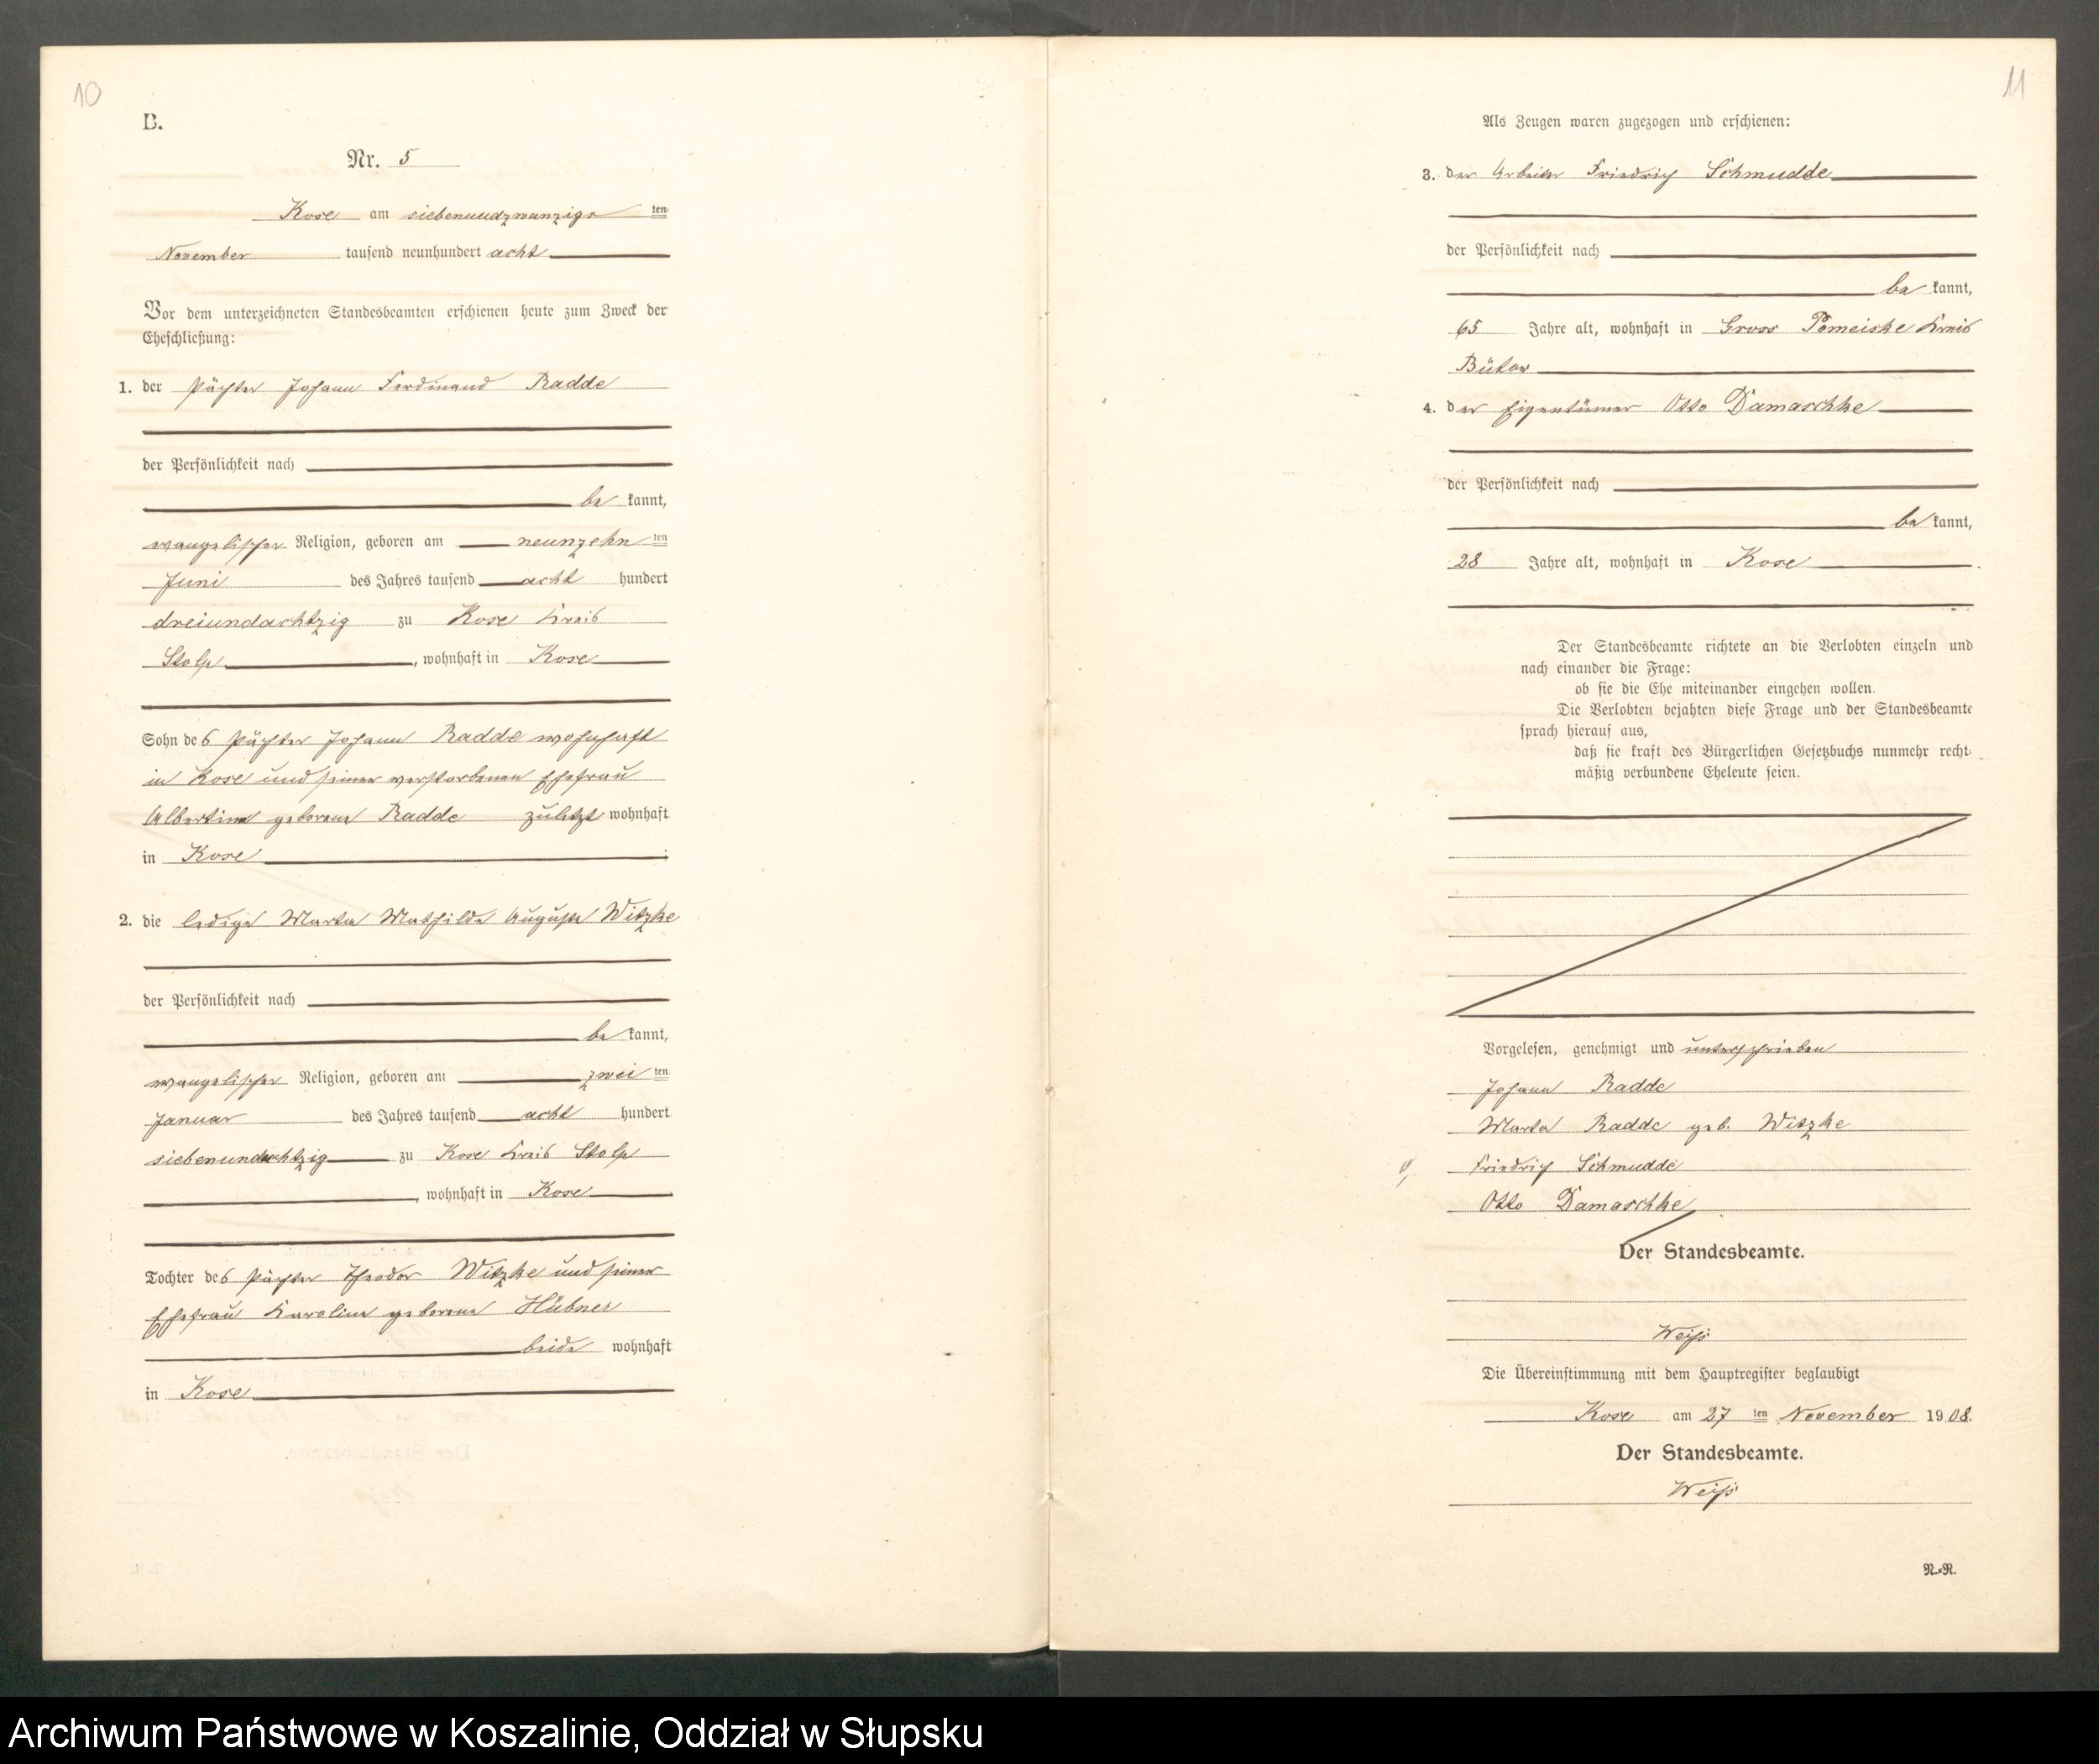 10
B.
Nr. 5
Kose am siebenundzwanzigs ten
November tausend neunhundert acht
Vor dem unterzeichneten Standesbeamten erschienen heute zum Zweck der
Eheschließung:
1. der Pächter Johann Ferdinand Radde
der Persönlichkeit nach
be kannt,
evangelischer Religion, geboren am neunzehn ten
Juni des Jahres tausend acht hundert
dreiundachtzig zu Kose Kreis
Stolp, wohnhaft in Kose
Sohn des Pächter Johann Radde wohnhaft
in Kose und seiner verstorbenen Ehefrau
Albertine geborene Radde zuletzt wohnhaft
in Kose
2. die ledige Marta Mathilde Auguste Witzke
der Persönlichkeit nach
be kannt,
evangelischer Religion, geboren am zwei ten
Januar des Jahres tausend acht hundert
siebenundachtzig zu Kose Kreis Stolp
, wohnhaft in Kose
Tochter des Pächter Theodor Witzke und seiner
Ehefrau Karoline geborene Hübner
beide wohnhaft
in Kose
11
Als Zeugen waren zugezogen und erschienen:
3. der Arbeiter Friedrich Schmudde
der Persönlichkeit nach
be kannt,
65 Jahre alt, wohnhaft in Gross Pomeiske Kreis
Bütow
4. der Eigentümer Otto Damaschke
der Persönlichkeit nach
be kannt,
28 Jahre alt, wohnhaft in Kose
Der Standesbeamte richtete an die Verlobten einzeln und
nach einander die Frage:
ob sie die Ehe miteinander eingehen wollen.
Die Verlobten bejahten diese Frage und der Standesbeamte
sprach hierauf aus,
daß sie kraft des Bürgerlichen Gesetzbuchs nunmehr recht-
mäßig verbundene Eheleute seien.
Vorgelesen, genehmigt und unterschrieben
Johann Radde
Marta Radde geb. Witzke
Friedrich Schmudde
Otto Damaschke
Der Standesbeamte.
Weiß
Die Übereinstimmung mit dem Hauptregister beglaubigt
Kose am 27 ten November 1908.
Der Standesbeamte.
Weiß
N.-N.
Archiwum Państwowe w Koszalinie, Oddział w Słupsku